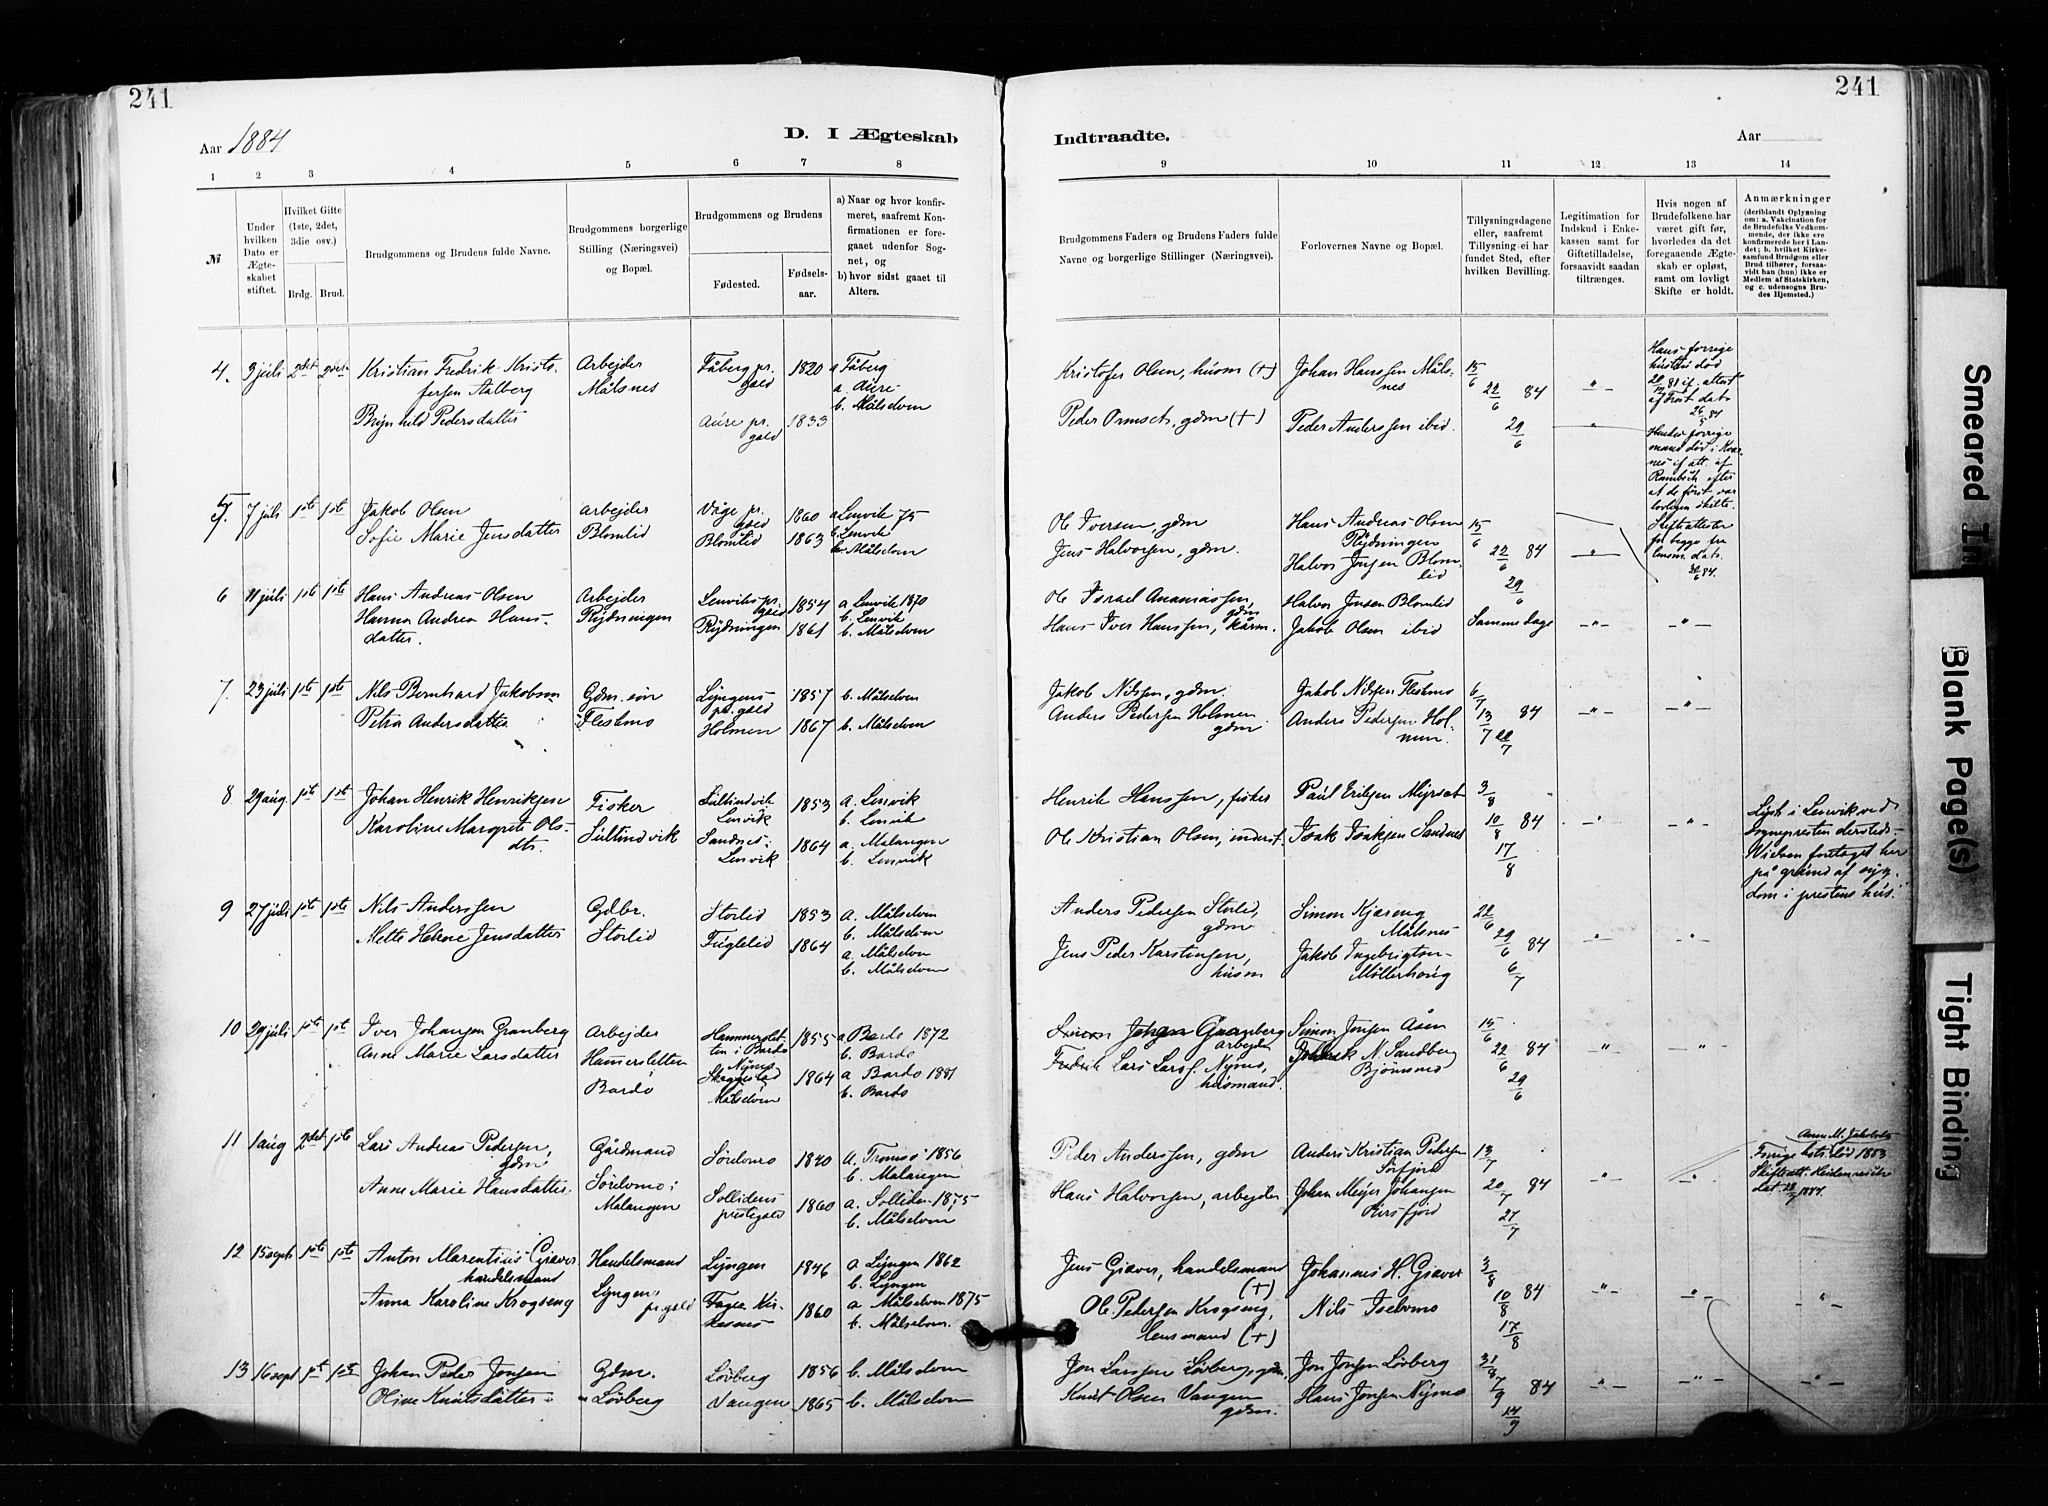 241
241
Aar 1884
D. I Ægteskab
Indtraadte.
Aar
1 2 3 4 5 6 7 8
9 10 11 12 13 14
№
Under hvilken Dato er Ægteskabet stiftet.
Hvilket Gifte (1ste, 2det, 3die osv.)
Brdg. Brud.
Brudgommens og Brudens fulde Navne.
Brudgommens borgerlige Stilling (Næringsvei) og Bopæl.
Brudgommens og Brudens
Fødested.
Fødselsaar.
a) Naar og hvor konfirmeret, saafremt Konfirmationen er foregaaet udenfor Sognet, og
b) hvor sidst gaaet til Alters.
Brudgommens Faders og Brudens Faders fulde Navne og borgerlige Stillinger (Næringsvei).
Forlovernes Navne og Bopæl.
Tillysningsdagene eller, saafremt Tillysning ei har fundet Sted, efter hvilken Bevilling.
Legitimation for Indskud i Enkekassen samt for Giftetilladelse, forsaavidt saadan tiltrænges.
Hvis nogen af Brudefolkene har været gift før, hvorledes da det foregaaende Ægteskab er opløst, samt om lovligt Skifte er holdt.
Anmærkninger
(deriblandt Oplysning om: a. Vakcination for de Brudefolks Vedkommende, der ikke ere konfirmerede her i Landet; b. hvilket Kirkesamfund Brudgom eller Brud tilhører, forsaavidt han (hun) ikke er Medlem af Statskirken, og c. udensogns Brudes Hjemsted.)
4. 3 juli 2det 2det Kristian Fredrik Kristofersen Aalberg Arbejder Målsnes Fåberg pr. gæld 1820 a Fåberg
Brynhild Pedersdatter Aure pr. gæld 1833 a. Aure b. Målselven
Kristofer Olsen, husm (+) Johan Hanssen Målsnes 15/6 22/6 84 29/6
Peder Ormset, gdm (+) Peder Anderssen ibid.
Hans forrige hustru død
5. 7 juli 1ste 1ste Jakob Olsen arbejder Blomlid Våge pr. gæld 1860 a Lenvik 75 b. Lenvik
Sofie Marie Jensdatter Blomlid 1863 b. Målselven
Ole Iversen, gdm Hans Andreas Olsen Rydningen 15/6 22/6 84 29/6
Jens Halvorsen, gdm. Halvor Jensen Blomlid
6 11 juli 1ste 1ste Hans Andreas Olsen Arbejder Rydningen Lenviks pr. gæld 1854 a Lenvik 1870 b. Lenvik
Hanna Andrea Hansdatter. Rydningen 1861 b. Målselven
Ole Israel Ananiassen, gdm Halvor Jensen Blomlid Samme dage
Hans Iver Hanssen, Jakob Olsen ibid
7. 23 juli 1ste 1ste Nils Bernhard Jakobsen Gdm. søn Flestmo Lyngens pr. gæld 1857 b. Målselven
Petra Andersdatter Holmen 1867 b. Målselven
Jakob Nilssen, gdm. Jakob Nilssen Flestmo 6/7 13/7 84
Anders Pedersen Holmen gdm Anders Pedersen Holmen.
8 29 aug. 1ste 1ste Johan Henrik Henriksen Fisker Sultindvik Sultindvik Lenvik 1853 a. Lenvik b. Lenvik
Karoline Margrete Olsdtr. Sandnes i Lenvik 1864 a. Malangen b. Lenvik
Henrik Hanssen, fisker Paul Eriksen Myrset 3/8 10/8 84 17/8
Ole Kristian Olsen, inderst. Isak Isaksen Sandnes
Lyst i Lenvik ved sognepresten dersteds. Vielsen foretaget her på grund af sygdom i prestens hus.
9 27 juli 1ste 1ste Nils Anderssen Gdbr. Storlid Storlid 1853 a. Målselven b. Målselven
Mette Jensdatter Fuglelid 1864 a. Målselven b. Målselven
Anders Pedersen Storlid, gdm Simon Kjæreng Målsnes 22/6 29/6 84 6/7
Jens Peder Karstensen, husm Jakob Ingebrigtsen Møllerhaug
10 29 juli 1ste 1ste Iver Johansen Granberg Arbejder Hamersletten Bardo 1855 a Bardo 1872 b. Bardo
Anne Marie Larsdatter Målselven 1864 a Bardo 1881 b. Bardo
Johan Granberg arbejder Simon Jonsen Åsen 15/6 22/6 84 29/6
Lars Lars. Nymo, husmand. N. Sandberg Bjørnsmo
11 1 aug 2det 1ste Lars Andreas Pedersen, gdm Gårdmand Sørelvmo i Malangen Sørelvmo 1840 a. Tromsø 1856 b. Malangen
Anne Marie Hansdatter. Sollidens prestegæld 1860 a. Solliden 1875 b. Målselven
Peder Anderssen, gdm Anders Kristian Pedersen Sørfjord 13/7 20/7 84 27/7
Hans Halvorsen, arbejder Johan Meyer Johansen
12 15 sept 1ste 1ste Anton Marentius Giæver handelsmand Handelsmand Lyngens pr. gæld Lyngen 1846 a Lyngen 1862 b. Lyngen
Anna Karoline Krogseng 1860 a Målselven 1875 b. Målselven.
Jens Giæver, handelsmand (+) Johannes H. Giæver 3/8 10/8 84 17/8
Ole Pedersen Krogseng, lensmand (+) Nils Iselvmo
13 16 sept 1ste 1ste Johan Peder Jonsen Gdm. Løvberg Løvberg 1856 b. Målselven
Oline Knutsdatter Vangen 1865 b. Målselven
Jon Larssen Løvberg, gdm. Jon Jonsen Løvberg 31/8 7/9 84 14/9
Knut Olsen Vangen gdm. Hans Jonsen Nymo
Smeared Ink
Blank Page(s)
Tight Binding